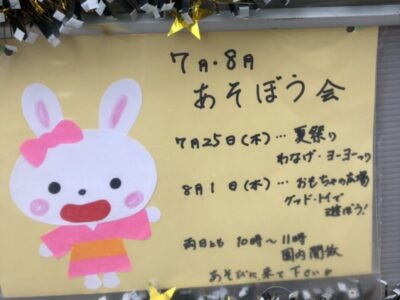 7月・8月
あそぼう会
7月25日(木)…夏祭り
わなげ・ヨーヨーつり
8月1日(木)…おもちゃの広場
グッド・トイで
遊ぼう!
両日とも 10時~11時
園内開放
あそびに来て下さい